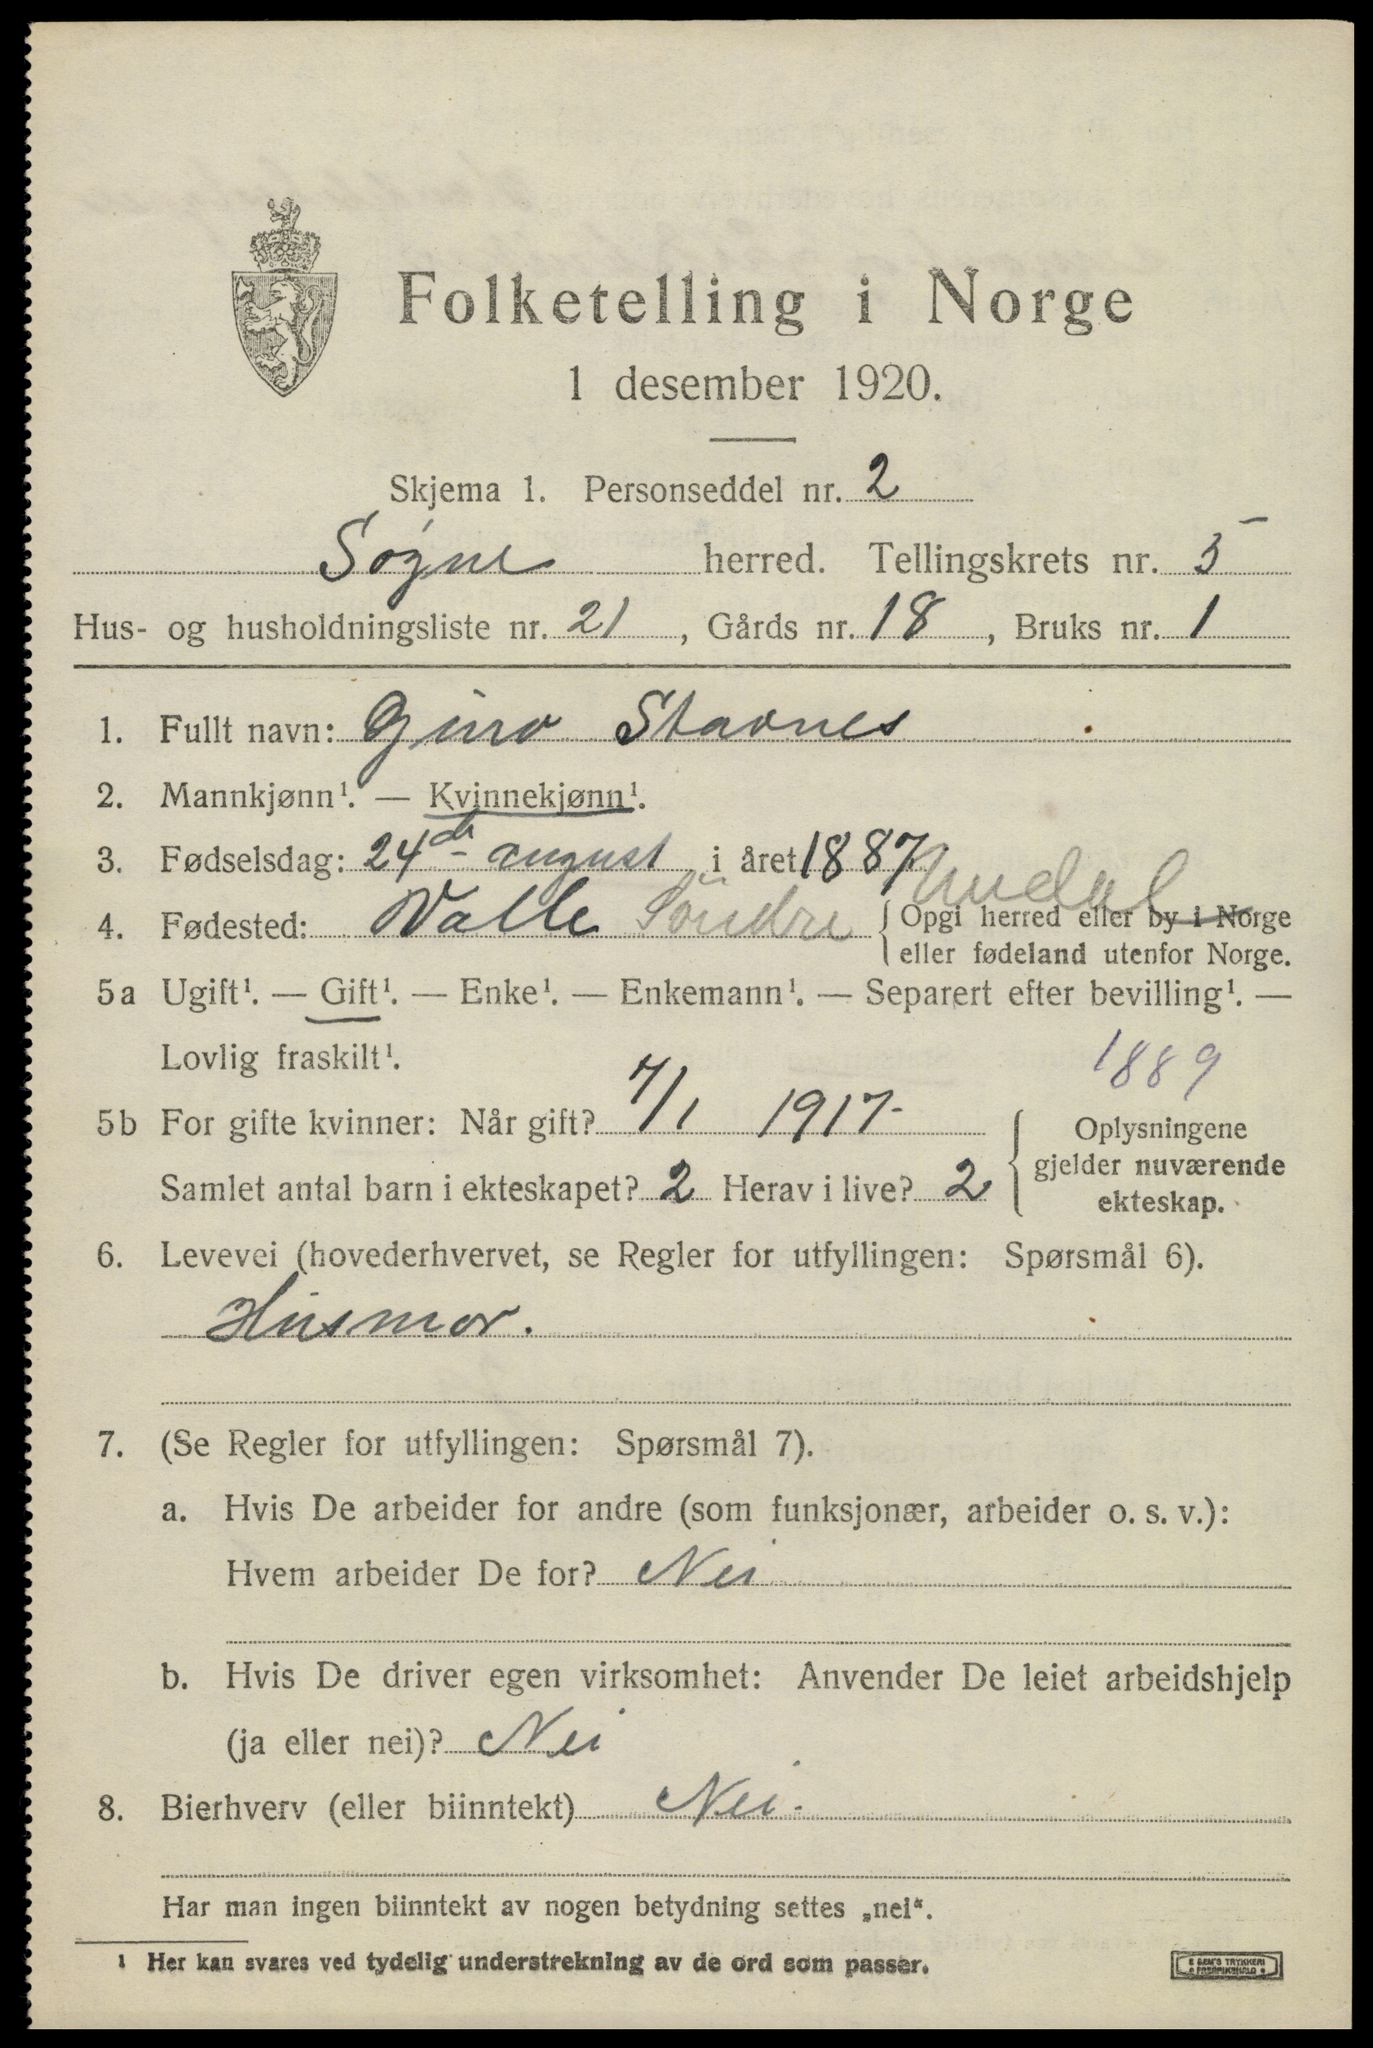 Folketelling i Norge
1 desember 1920.
Skjema 1. Personseddel nr. 2
Søgne herred. Tellingskrets nr. 5
Hus- og husholdningsliste nr. 21, Gårds nr. 18, Bruks nr. 1
1. Fullt navn: Gina Stavnes
2. Mannkjønn¹. — Kvinnekjønn¹.
3. Fødselsdag: 24de august i året 1887
4. Fødested: Valle Söndre Undal { Opgi herred eller by i Norge
eller fødeland utenfor Norge.
5a Ugift¹. — Gift¹. — Enke¹. — Enkemann¹. — Separert efter bevilling¹. —
Lovlig fraskilt¹. 1889
5b For gifte kvinner: Når gift? 7/1 1917 - { Oplysningene
gjelder nuværende
Samlet antal barn i ekteskapet? 2 Herav i live? 2
ekteskap.
6. Levevei (hovederhvervet, se Regler for utfyllingen: Spørsmål 6).
Husmor.
7. (Se Regler for utfyllingen: Spørsmål 7).
a. Hvis De arbeider for andre (som funksjonær, arbeider o. s. v.):
Hvem arbeider De for? Nei
b. Hvis De driver egen virksomhet: Anvender De leiet arbeidshjelp
(ja eller nei)? Nei
8. Bierhverv (eller biinntekt) Nei.
Har man ingen biinntekt av nogen betydning settes „nei“.
¹ Her kan svares ved tydelig understrekning av de ord som passer.
SEM'S TRYKKERI
FREDRIKSHALD